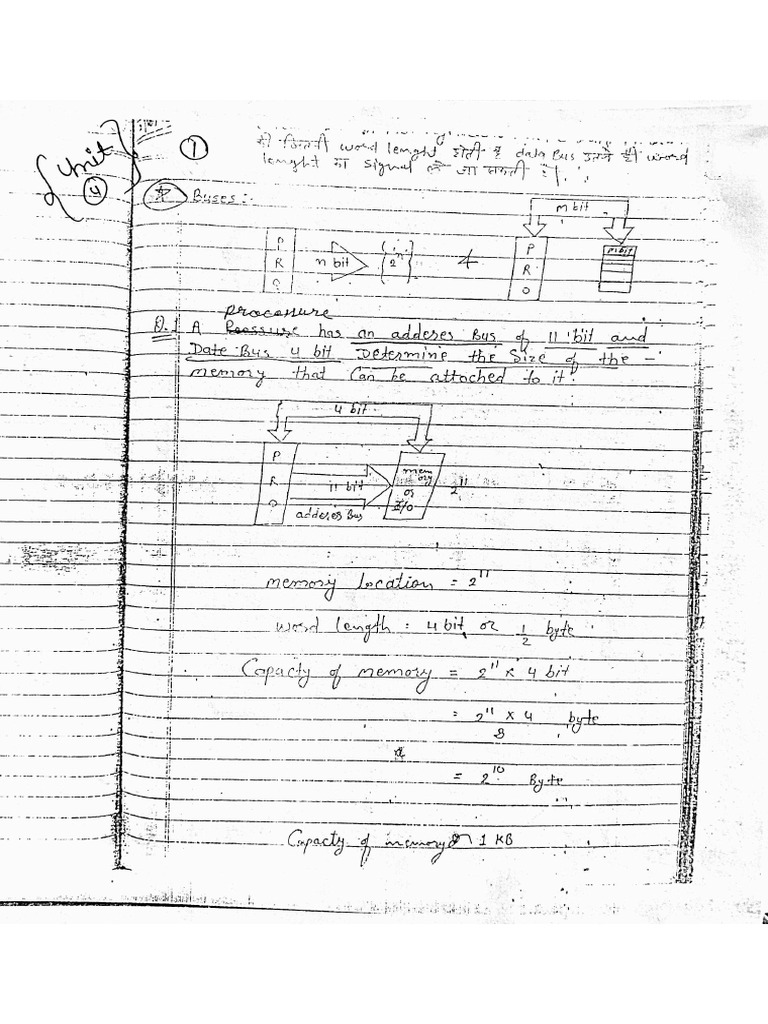 { Unit 4 }
1
की जितनी word lenght होती है data Bus उतने ही word
lenght का signal ले जा सकती है।
Buses:-
m bit
P R O
n bit
2^n
P R O
m bit
procossure
Q.1 A has an adderes Bus of 11 bit and
Date Bus 4 bit Determine the Size of the -
memory that Can be attached to it.
4 bit
P R O
11 bit
adderes Bus
mem
ory
or
I/O
2^11
memory location = 2^11
word length : 4 bit or 1/2 byte
Capacty of memory = 2^11 x 4 bit
= 2^11 x 4 / 8 byte
= 2^10 Byte
Capacty of memory 1 KB